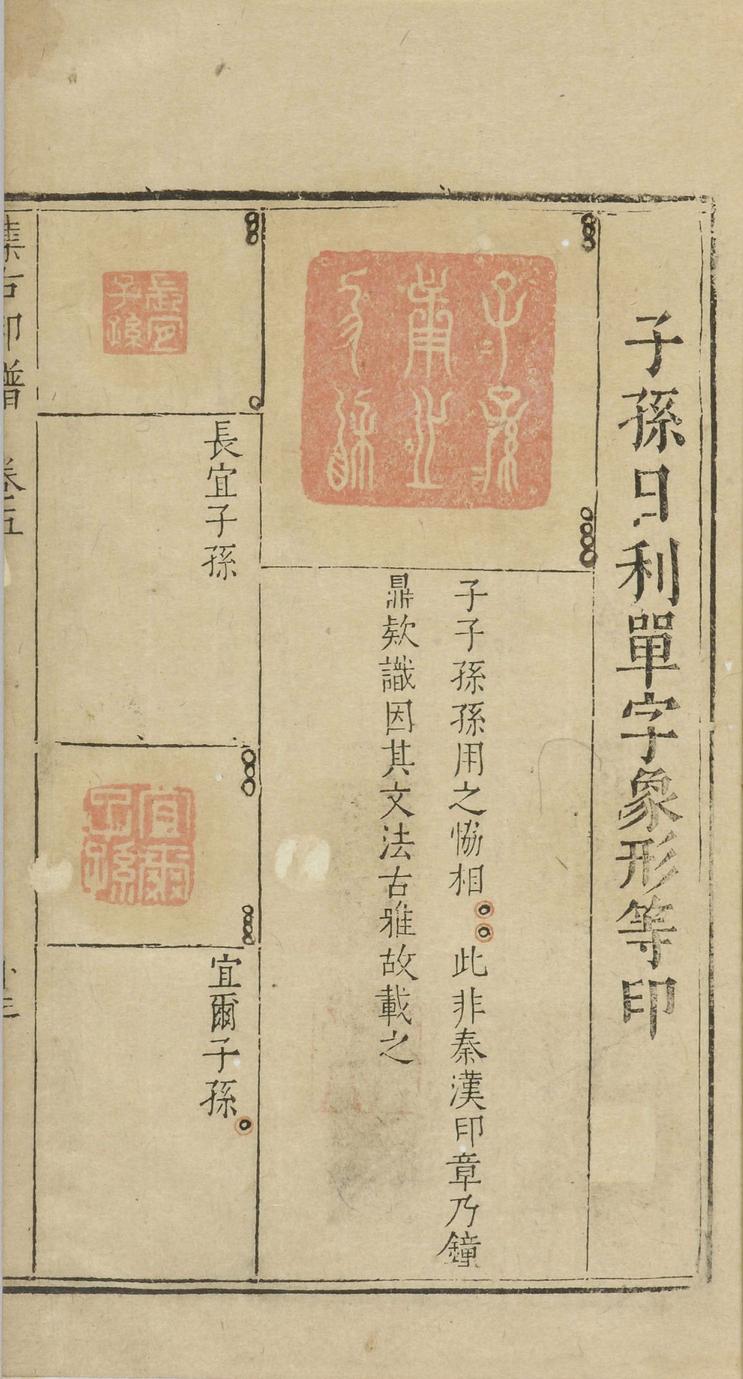 子孫日利單字象形等印
子子孫孫用之恊相此非秦漢印章乃鐘
鼎欵識因其文法古雅故載之
長宜子孫
長宜子孫
宜爾子孫
宜爾子孫
集古印譜 卷五